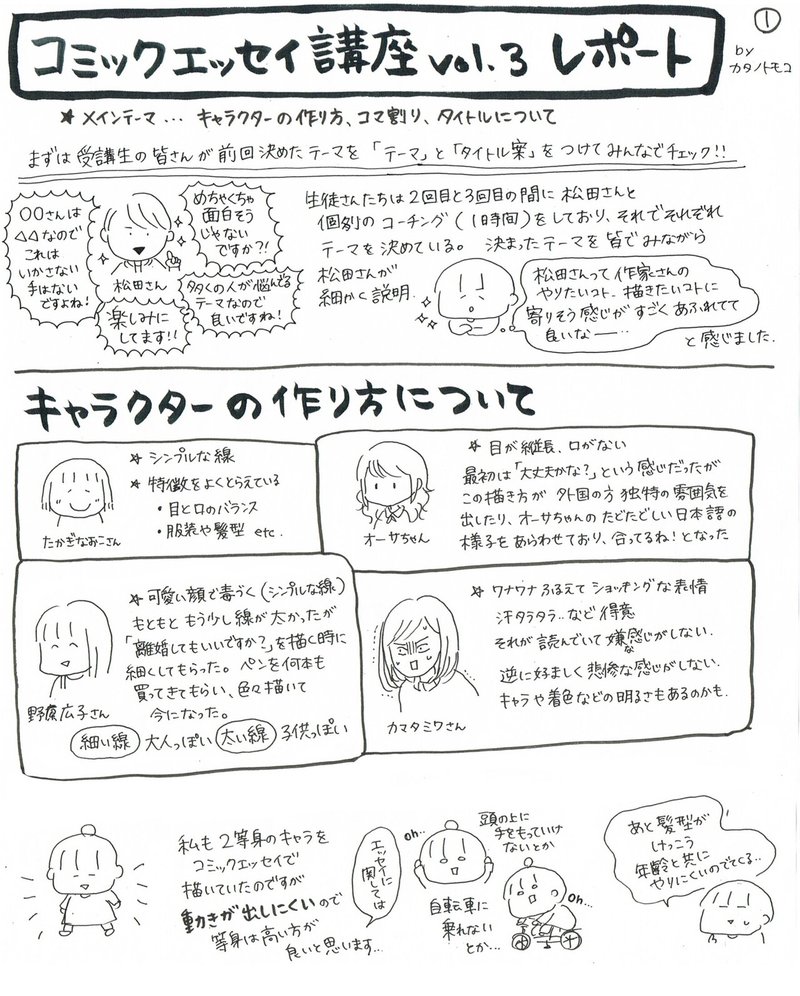 ①
コミックエッセイ講座 vol.3 レポート
by
カタノトモコ
★ メインテーマ… キャラクターの作り方、コマ割り、タイトルについて
まずは受講生の皆さんが前回決めたテーマを「テーマ」と「タイトル案」をつけてみんなでチェック!!
〇〇さんは
△△なので
これは
いかさない
手はない
ですよね!
めちゃくちゃ
面白そう
じゃない
ですか?!
松田さん
楽しみに
してます!!
多くの人が悩んでる
テーマなので
良いですね!
生徒さんたちは2回目と3回目の間に松田さんと
個別のコーチング(1時間)をしており、それでそれぞれ
テーマを決めている。 決まったテーマを皆でみながら
松田さんが
細かく説明.
松田さんって作家さんの
やりたいコト、描きたいコトに
寄りそう感じがすごくあふれてて
良いなー…
と感じました.
キャラクターの作り方について
★ シンプルな線
★ 特徴をよくとらえている
・目と口のバランス
・服装や髪型 etc.
たかぎなおこさん
★ 目が縦長、口がない
最初は「大丈夫かな?」という感じだったが
この描き方が 外国の方独特の雰囲気を
出したり、オーサちゃんのたどたどしい日本語の
様子をあらわせており、合ってるね!となった
オーサちゃん
★ 可愛い顔で毒づく(シンプルな線)
もともと もう少し線が太かったが
「離婚してもいいですか?」を描く時に
細くしてもらった。ペンを何本も
買ってきてもらい、色々描いて
今になった。
野原広子さん
細い線 大人っぽい 太い線 子供っぽい
★ ワナワナふるえてショッキングな表情
汗タラタラ‥など得意
それが読んでいて嫌な感じがしない.
逆に好ましく悲惨な感じがしない.
キャラや着色などの明るさもあるのかも.
カマタミワさん
私も2等身のキャラを
コミックエッセイで
描いていたのですが
動きが出しにくいので
等身は高い方が
良いと思います…
エッセイに
関しては
oh…
頭の上に
手をもっていけ
ないとか
自転車に
乗れない
とか…
oh…
あと髪型が
けっこう
年齢と共に
やりにくいのでてくる‥